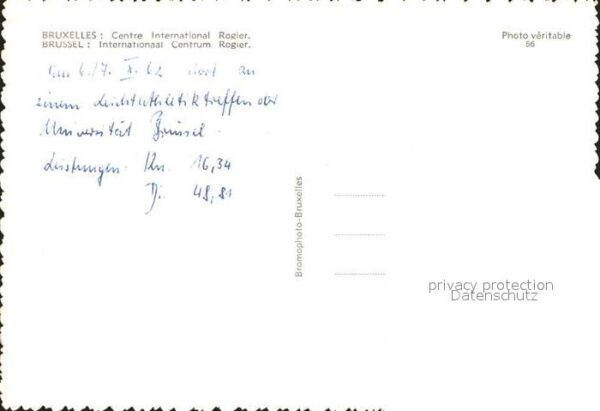 BRUXELLES : Centre International Rogier.
BRUSSEL : Internationaal Centrum Rogier.
Photo véritable
56
Am 6./7. X. 62 dort an
einem Leichtathletiktreffen der
Universität Brüssel.
Leistungen: Ku. 16,34
Di. 48,81
Bromophoto-Bruxelles
privacy protection
Datenschutz